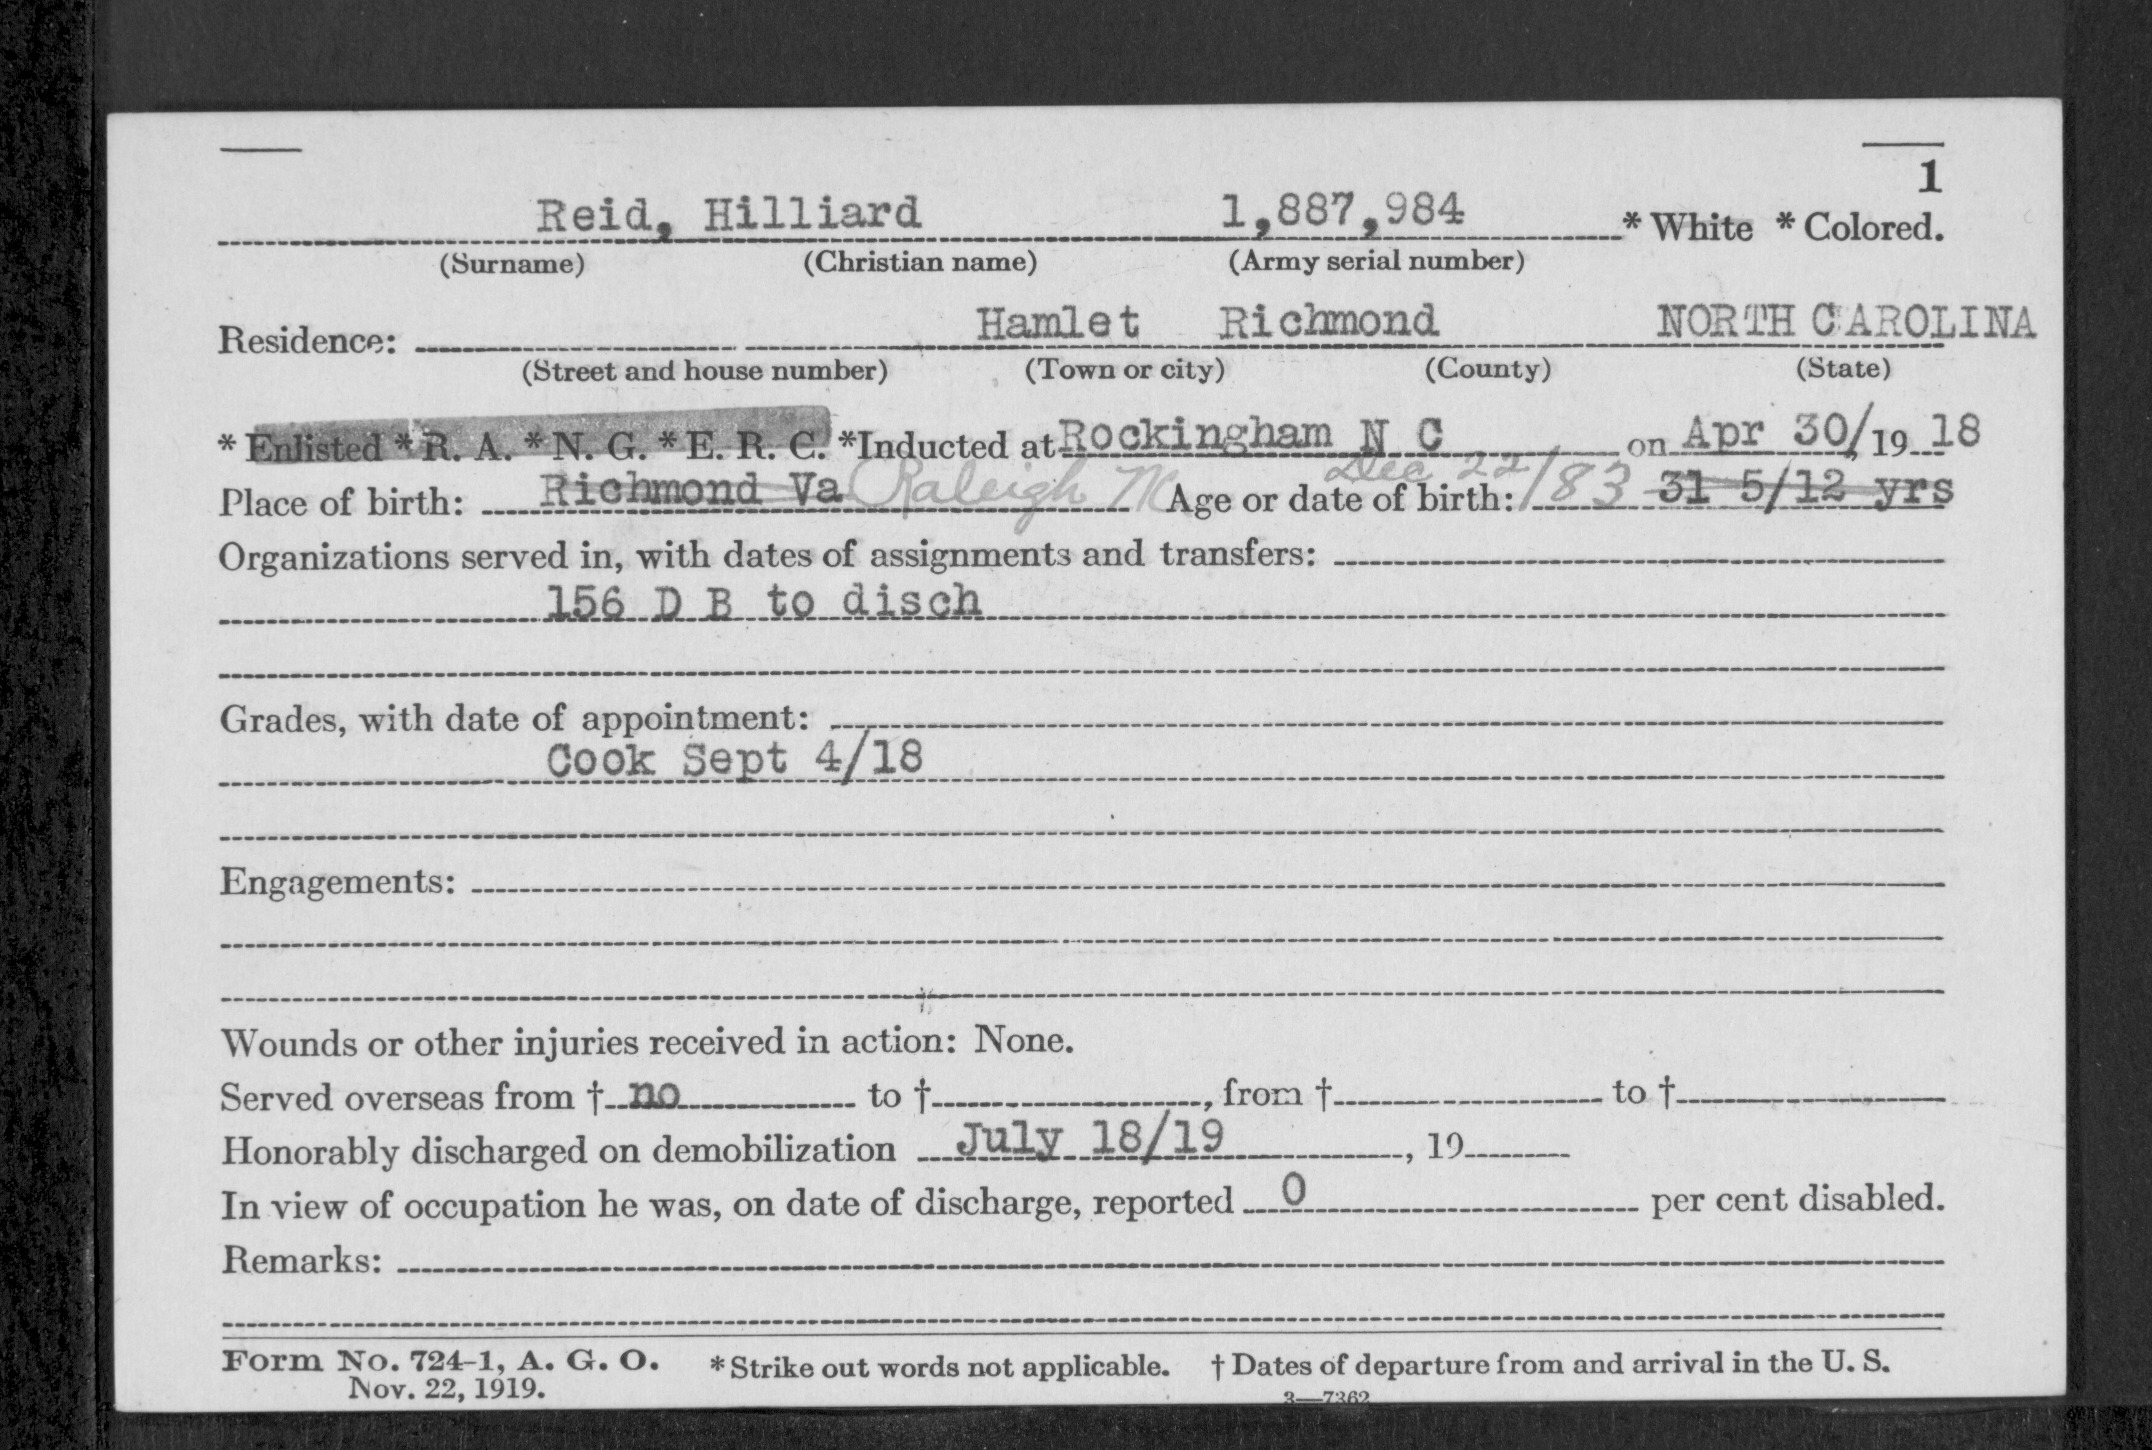 1
Reid, Hilliard 1,887,984 * White * Colored.
(Surname) (Christian name) (Army serial number)
Residence: Hamlet Richmond NORTH CAROLINA
(Street and house number) (Town or city) (County) (State)
* Enlisted * R. A. * N. G. * E. R. C. *Inducted at Rockingham N C on Apr 30/, 19 18
Place of birth: Richmond Va Raleigh N Age or date of birth: Dec 22/83 31 5/12 yrs
Organizations served in, with dates of assignments and transfers:
156 D B to disch
Grades, with date of appointment:
Cook Sept 4/18
Engagements:
Wounds or other injuries received in action: None.
Served overseas from † no to †, from † to †
Honorably discharged on demobilization July 18/19, 19
In view of occupation he was, on date of discharge, reported 0 per cent disabled.
Remarks:
Form No. 724-1, A. G. O. * Strike out words not applicable. † Dates of departure from and arrival in the U. S.
Nov. 22, 1919.
3—7362